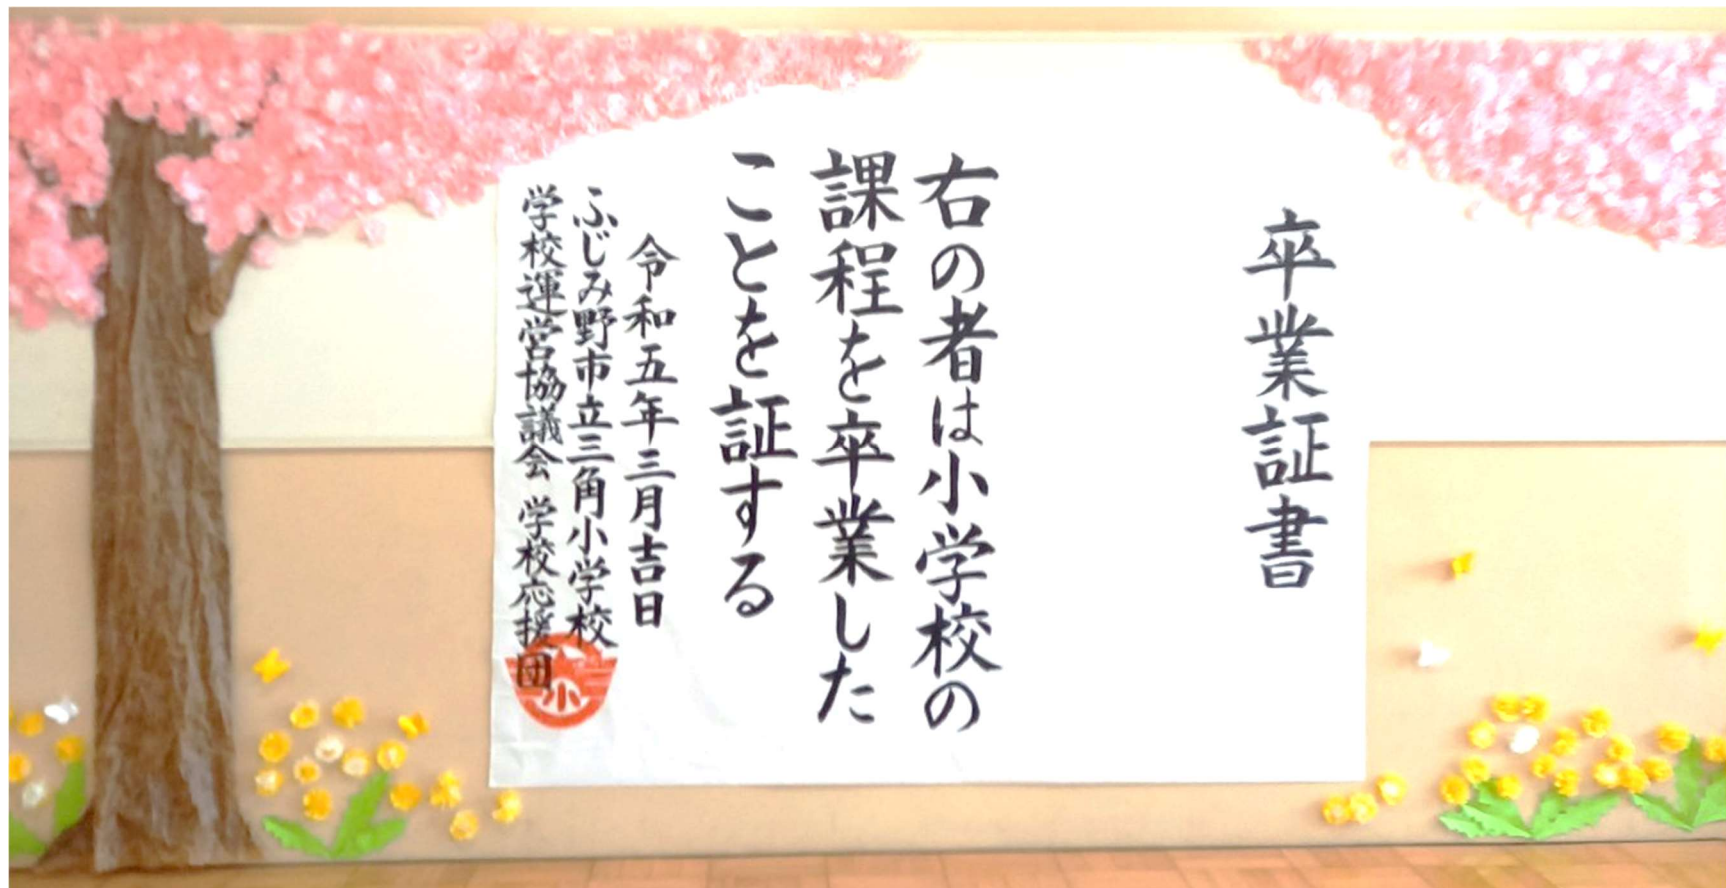 卒業証書
右の者は小学校の
課程を卒業した
ことを証する
令和五年三月吉日
ふじみ野市立三角小学校
学校運営協議会 学校応援団
小